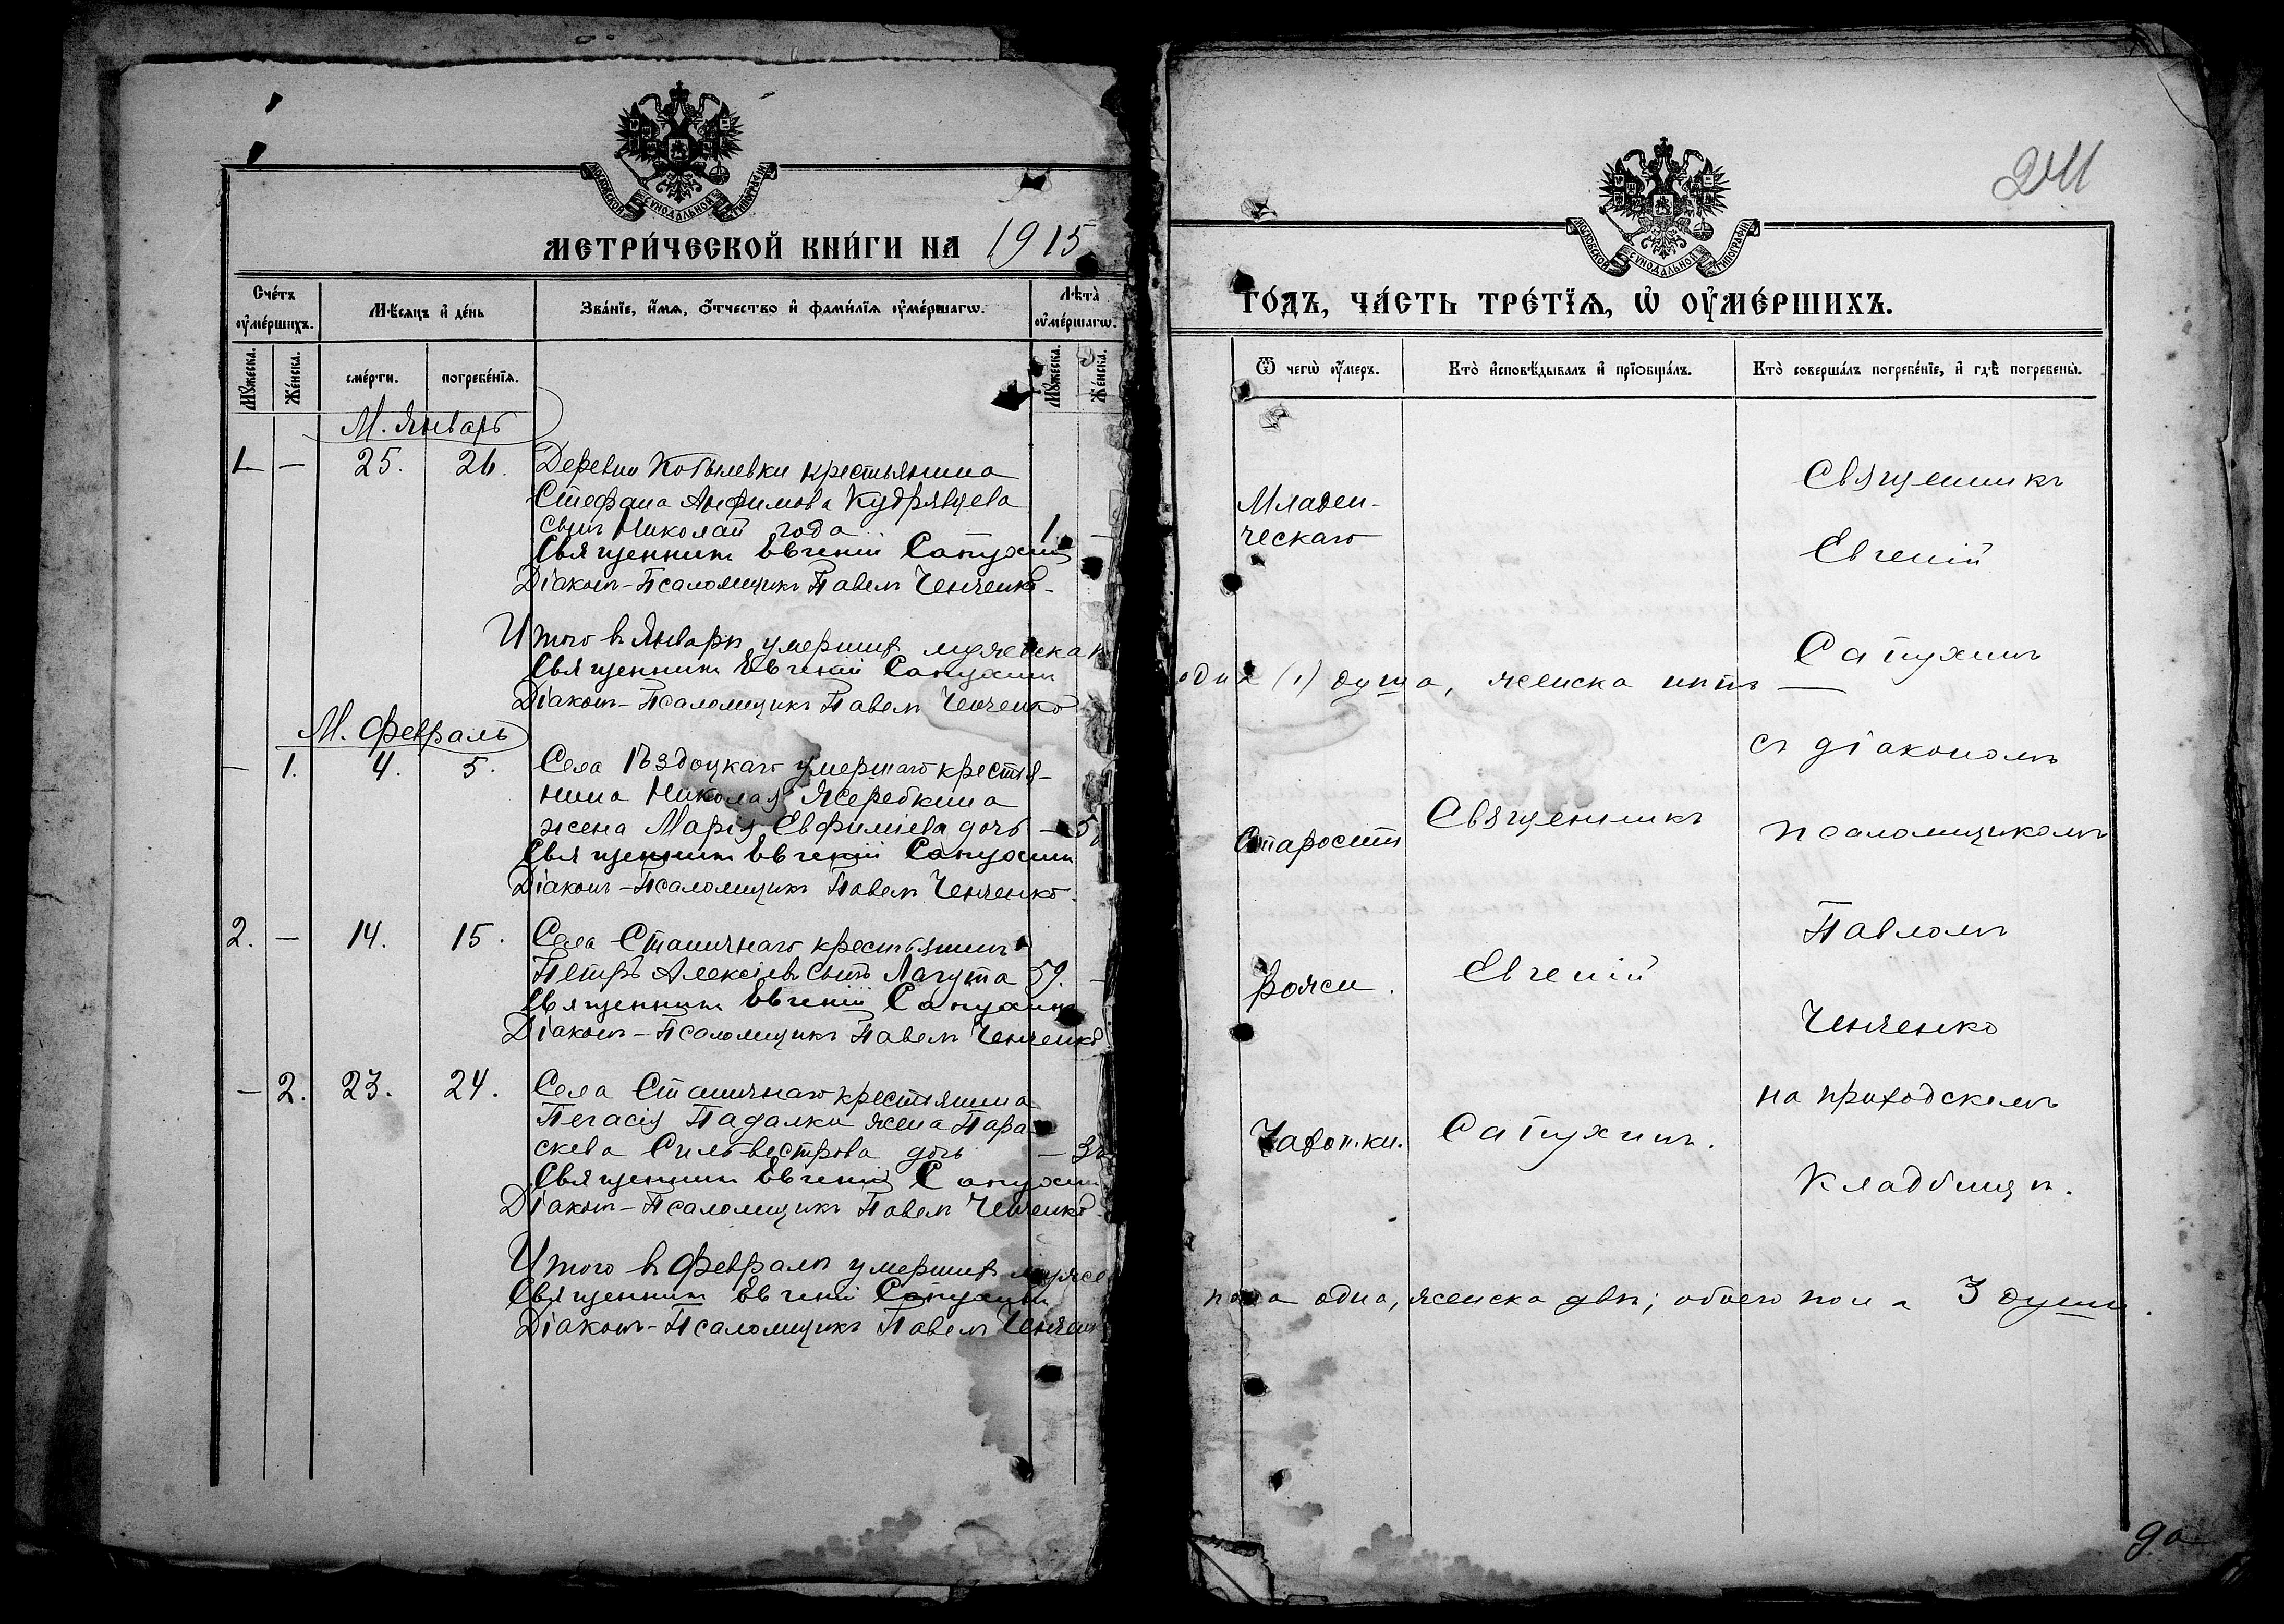 МОСКОВСКОЙ СѴНОДАЛЬНОЙ ТИПОГРАФІИ
МЕТРИ́ЧЕСКОЙ КНИ́ГИ НА 1915
Сче́тъ ᲂу҆ме́ршихъ.
Мѣ́сяцъ и҆ де́нь
Зва́нїе, и҆́мя, ѻ҆́тчество и҆ фами́лїя ᲂу҆ме́ршагѡ.
Лѣ́та ᲂу҆ме́ршагѡ.
Мꙋ́жеска.
Же́нска.
сме́рти.
погребе́нїя.
Мꙋ́жеска.
Же́нска.
М. Январь
1 — 25. 26. Деревни Кобылевки крестьянина
Стефана Анфимова Кудрявцева
сынъ Николай года 1 —
Священникъ Евгеній Сапухинъ
Діаконъ-Псаломщикъ Павелъ Ченченко
Итого въ Январѣ умершихъ мужеска
Священникъ Евгеній Сапухинъ
Діаконъ-Псаломщикъ Павелъ Ченченко
М. Февраль
— 1. 4. 5. Села умершаго крестья-
нина Николая Жеребкина
жена Марія Евфиміева дочь —
Священникъ Евгеній Сапухинъ
Діаконъ-Псаломщикъ Павелъ Ченченко
2. — 14. 15. Села Станичнаго крестьянинъ
Петръ Алексіевъ сынъ Лагута 59. —
Священникъ Евгеній Сапухинъ
Діаконъ-Псаломщикъ Павелъ Ченченко
— 2. 23. 24. Села Станичнаго крестьянина
Пегасія Падалки жена Пара-
скева Сильвестрова дочь —
Священникъ Евгеній Сапухинъ
Діаконъ-Псаломщикъ Павелъ Ченченко
Итого въ Февралѣ умершихъ мужес
Священникъ Евгеній Сапухинъ
Діаконъ-Псаломщикъ Павелъ Ченчен
241
МОСКОВСКОЙ СѴНОДАЛЬНОЙ ТИПОГРАФІИ
ГО́ДЪ, ЧА́СТЬ ТРЕ́ТЇЯ, Ѡ҆ ОУ҆МЕ́РШИХЪ.
Ѿ чегѡ̀ ᲂу҆́меръ.
Кто̀ и҆сповѣ́дывалъ и҆ прїѡбща́лъ.
Кто̀ соверша́лъ погребе́нїе, и҆ гдѣ̀ погребены̀.
Младен-
ческаго
Священникъ
Евгеній
Сапухинъ
одна (1) душа, женска нѣтъ —
съ діакономъ
Старости
Священникъ
псаломщикомъ
Павломъ
Рожи.
Евгеній
Ченченко
на приходскомъ
Чахотки.
Сапухинъ.
кладбищѣ.
пола одна, женска двѣ; обоего пола 3 души.